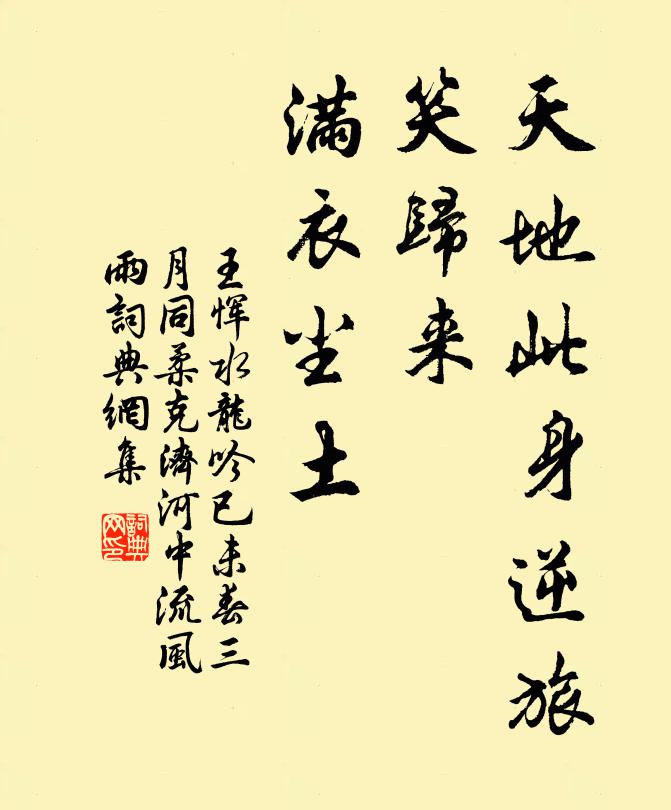 天地此身逆旅
笑歸来
滿衣尘土
王惲水龍吟己未春三
月同柔克濟河中流風
雨詞典網集
詞典
网印